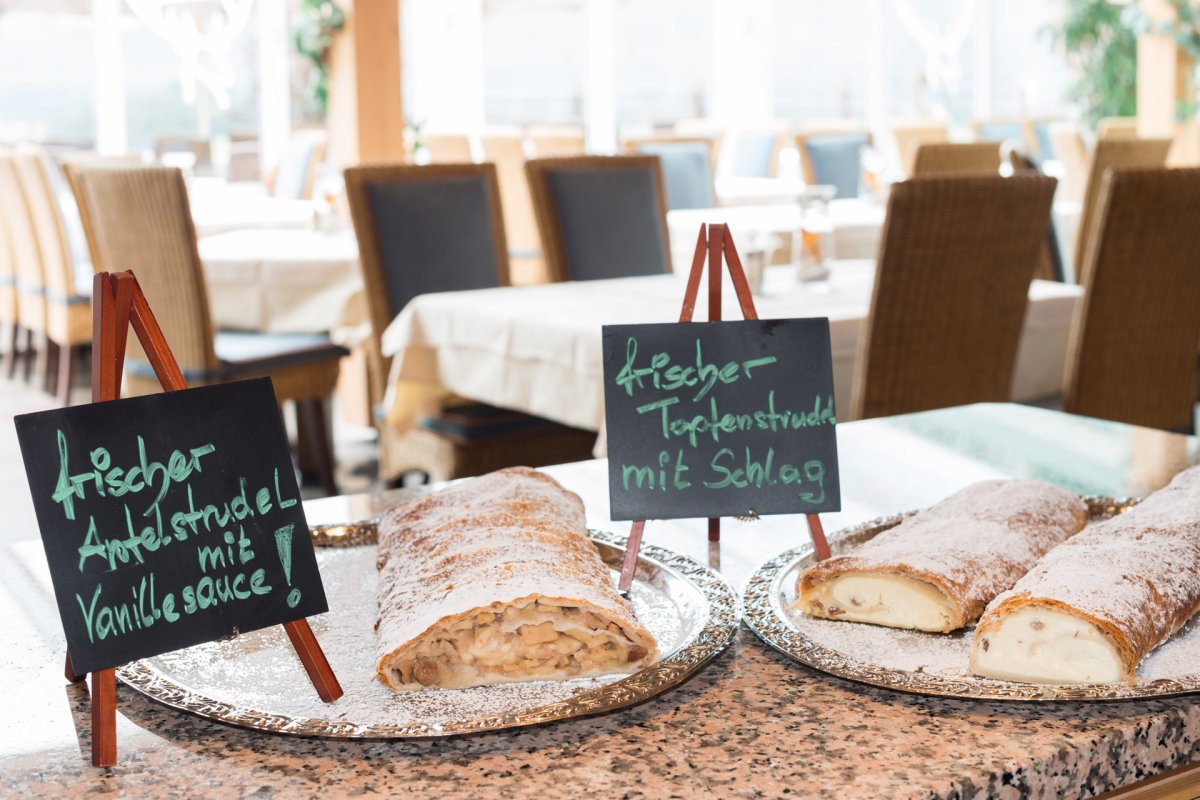 frischer
Apfelstrudel
mit
Vanillesauce !
frischer
Topfenstrudel
mit Schlag